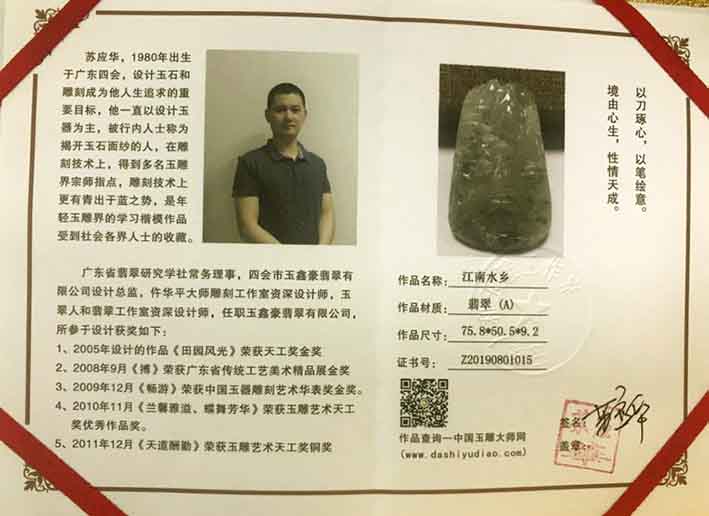 苏应华，1980年出生
于广东四会，设计玉石和
雕刻成为他人生追求的重
要目标，他一直以设计玉
器为主，被行内人士称为
揭开玉石面纱的人，在雕
刻技术上，得到多名玉雕
界宗师指点，雕刻技术上
更有青出于蓝之势，是年
轻玉雕界的学习楷模作品
受到社会各界人士的收藏。
广东省翡翠研究学社常务理事，四会市玉鑫豪翡翠有
限公司设计总监，仵华平大师雕刻工作室资深设计师，玉
翠人和翡翠工作室资深设计师，任职玉鑫豪翡翠有限公司，
所参于设计获奖如下：
1、2005年设计的作品《田园风光》荣获天工奖金奖
2、2008年9月《搏》荣获广东省传统工艺美术精品展金奖
3、2009年12月《畅游》荣获中国玉器雕刻艺术华表奖金奖。
4、2010年11月《兰馨雅溢、蝶舞芳华》荣获玉雕艺术天工
奖优秀作品奖。
5、2011年12月《天道酬勤》荣获玉雕艺术天工奖铜奖
以刀琢心，以笔绘意。
境由心生，性情天成。
作品名称：江南水乡
作品材质：翡翠（A）
作品尺寸：75.8*50.5*9.2
证书号：Z20190801015
签名：
盖章：
作品查询—中国玉雕大师网
(www.dashiyudiao.com)